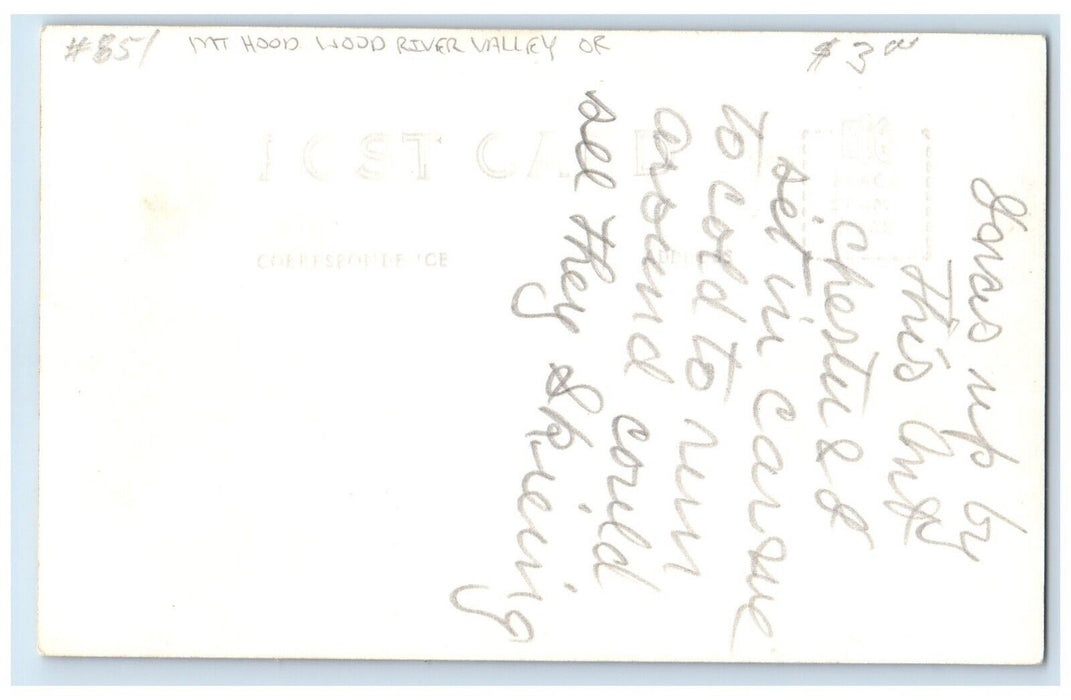 #851 MT HOOD WOOD RIVER VALLEY OR $3.00
POST CARD
CORRESPONDENCE ADDRESS
up by
this
Chester &
set in car
to cold to run
around could
see they skieing